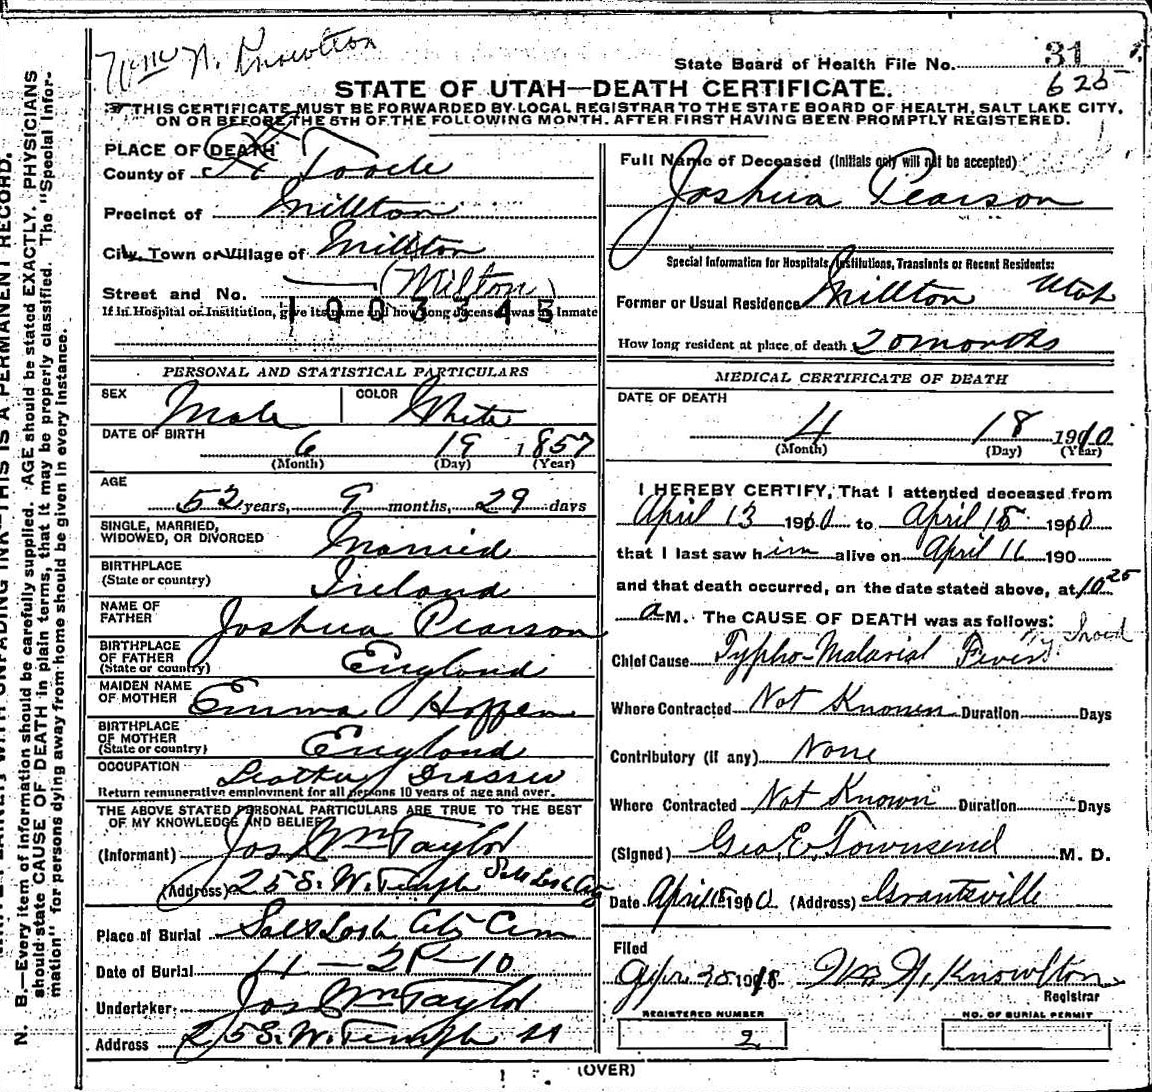 Wm N. Knowlton
State Board of Health File No. 31
625
STATE OF UTAH—DEATH CERTIFICATE.
THIS CERTIFICATE MUST BE FORWARDED BY LOCAL REGISTRAR TO THE STATE BOARD OF HEALTH, SALT LAKE CITY,
ON OR BEFORE THE 5TH OF THE FOLLOWING MONTH. AFTER FIRST HAVING BEEN PROMPTLY REGISTERED.
PLACE OF DEATH
County of Tooele
Precinct of Millton
City, Town or Village of Millton
(Milton)
Street and No.
1003345
If in Hospital or Institution, give its name and how long deceased was an inmate
PERSONAL AND STATISTICAL PARTICULARS
SEX Male COLOR White
DATE OF BIRTH
6 19 1857
(Month) (Day) (Year)
AGE
52 years, 9 months, 29 days
SINGLE, MARRIED,
WIDOWED, OR DIVORCED Married
BIRTHPLACE
(State or country) Ireland
NAME OF
FATHER Joshua Pearson
BIRTHPLACE
OF FATHER
(State or country) England
MAIDEN NAME
OF MOTHER Emma Hoffen
BIRTHPLACE
OF MOTHER
(State or country) England
OCCUPATION Leather Dresser
Return remunerative employment for all persons 10 years of age and over.
THE ABOVE STATED PERSONAL PARTICULARS ARE TRUE TO THE BEST
OF MY KNOWLEDGE AND BELIEF
(Informant) Jos Wm Taylor
(Address) 25 S. W. Temple Salt Lake City
Place of Burial Salt Lake City Cem
Date of Burial
Undertaker Jos Wm Taylor
Address 25 S. W. Temple St
Full Name of Deceased (Initials only will not be accepted)
Joshua Pearson
Special Information for Hospitals, Institutions, Transients or Recent Residents:
Former or Usual Residence Millton Utah
How long resident at place of death 20 months
MEDICAL CERTIFICATE OF DEATH
DATE OF DEATH
4 18 1910
(Month) (Day) (Year)
I HEREBY CERTIFY, That I attended deceased from
April 13 1910 to April 18 1910
that I last saw him alive on April 16 190
and that death occurred, on the date stated above, at 10 25
a M. The CAUSE OF DEATH was as follows:
Chief Cause Typho-Malarial Fever
Where Contracted Not Known Duration Days
Contributory (if any) None
Where Contracted Not Known Duration Days
(Signed) Geo. E. Townsend M. D.
Date April 18 1910 (Address) Grantsville
Filed
Apr 1908 Wm N. Knowlton
Registrar
REGISTERED NUMBER
2
NO. OF BURIAL PERMIT
(OVER)
N. B.—Every item of information should be carefully supplied. AGE should be stated EXACTLY. PHYSICIANS
should state CAUSE OF DEATH in plain terms, that it may be properly classified. The "Special Infor-
mation" for persons dying away from home should be given in every instance.